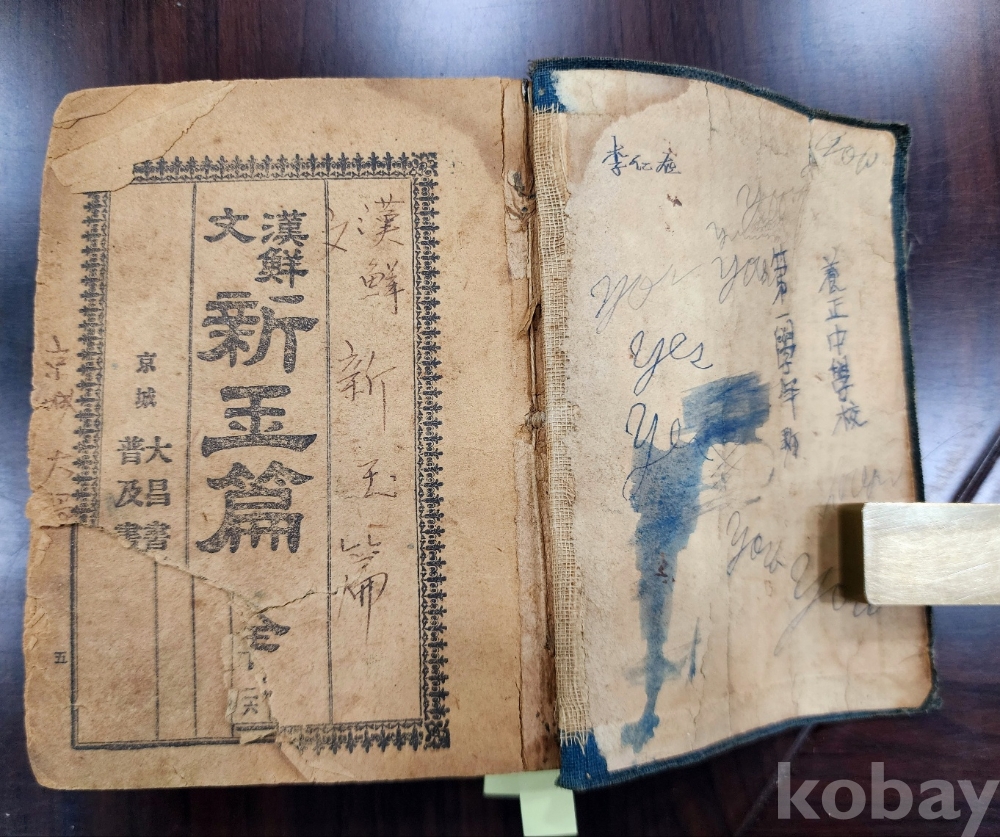 李仁
養正中學校
第一學年
You
You
You You
Yes
Yes
You
You
漢鮮文新玉篇
漢鮮文
新玉篇
全
京城
大昌書
普及書
京城 大
五
二六
kobay